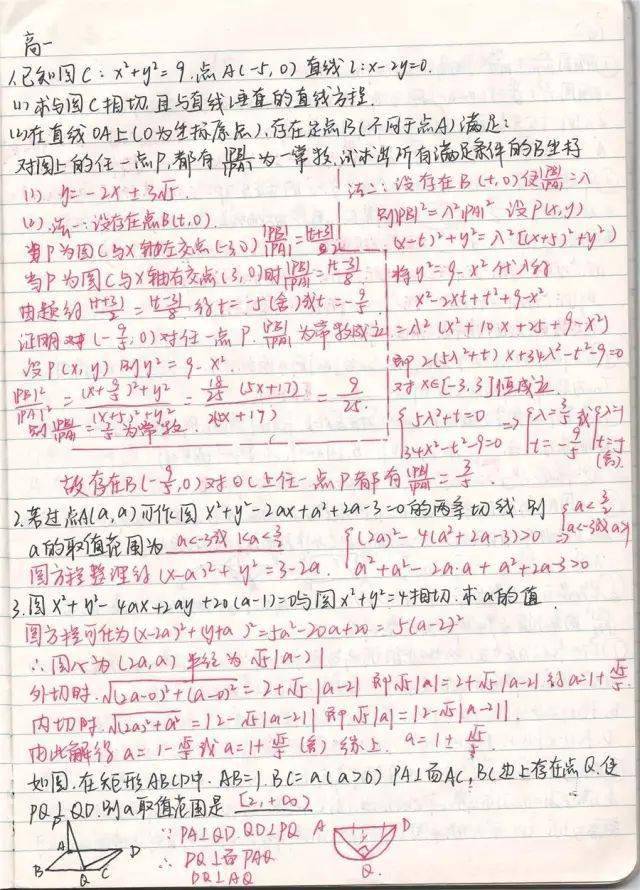 高一
1.已知圆C：x²+y²=9.点A(-5,0) 直线l:x-2y=0.
(1) 求与圆C相切.且与直线l垂直的直线方程.
(2)在直线OA上(O为坐标原点),存在定点B(不同于点A)满足:
对圆上的任一点P,都有|PB|/|PA|为一常数,试求出所有满足条件的B坐标
(1) y=-2x±3√5.
(2).法一:设存在点B(t,0).
当P为圆C与x轴左交点(-3,0) |PB|/|PA|=|t+3|/2
当P为圆C与x轴右交点(3,0)时|PB|/|PA|=|t-3|/8.
由题得|t+3|/2=|t-3|/8 得t=-5(舍)或t=-9/5.
证明 (-9/5,0)对任一点P.|PB|/|PA|为常数成立
设P(x,y)则y²=9-x².
|PB|²/|PA|²=((x+9/5)²+y²)/((x+5)²+y²)=18/25(5x+17)/2(5x+17)=9/25.
则|PB|/|PA|=3/5为常数.
法二:设存在B(t,0)使|PB|/|PA|=λ
则|PB|²=λ²|PA|² 设P(x,y)
(x-t)²+y²=λ²[(x+5)²+y²)
将y²=9-x²代入得
x²-2xt+t²+9-x²
=λ²(x²+10x+25+9-x²)
即2(5λ²+t)x+34λ²-t²-9=0
对x∈[-3,3]恒成立.
{5λ²+t=0 34λ²-t²-9=0 ⇒{λ=3/5 t=-9/5 或{λ=1 t=-5 (舍).
故存在B(-9/5,0)对⊙C上任一点P都有|PB|/|PA|=3/5.
2.若过点A(a,a)可作圆x²+y²-2ax+a²+2a-3=0的两条切线.则
a的取值范围为 a<-3或1<a<3/2 {(2a)²-4(a²+2a-3)>0 a²+a²-2a·a+a²+2a-3>0 ⇒{a<3/2 a<-3或a>1
圆方程整理得(x-a)²+y²=3-2a.
3.圆x²+y²-4ax+2ay+20(a-1)=0与圆x²+y²=4相切.求a的值.
圆方程可化为(x-2a)²+(y+a)²=5a²-20a+20=5(a-2)²
∴圆心为(2a,a) 半径为√5|a-2|
外切时.√((2a-0)²+(a-0)²)=2+√5|a-2| 即√5|a|=2+√5|a-2| 得a=1+√5/5.
内切时.√((2a)²+a²)=|2-√5|a-2|| 即√5|a|=|2-√5|a-2||.
由此解得a=1-√5/5或a=1+√5/5(舍) 综上. a=1±√5/5.
如图.在矩形ABCD中.AB=1.BC=a(a>0) PA⊥面AC,BC边上存在点Q.使
PQ⊥QD.则a取值范围是 [2,+∞)
P A B Q C D
∵PA⊥QD QD⊥PQ
∴DQ⊥面PAQ
DQ⊥AQ
A D Q.